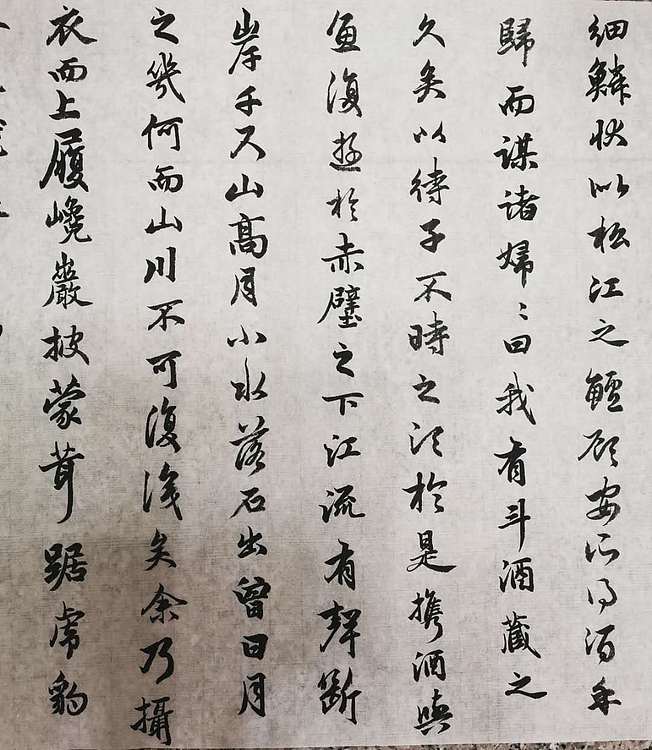 細鱗状似松江之鱸顧安所得酒乎
歸而謀諸婦〻曰我有斗酒藏之
久矣以待子不時之須於是攜酒與
魚復遊於赤壁之下江流有聲斷
岸千尺山高月小水落石出曾日月
之幾何而山川不可復識矣余乃攝
衣而上履巉巖披蒙茸踞虎豹